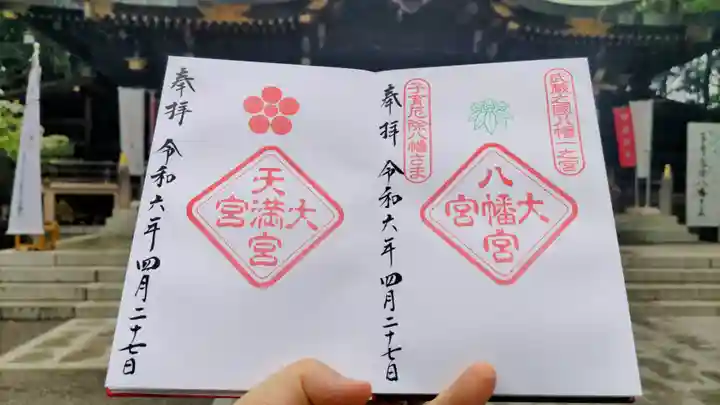 武蔵之国八幡一之宮
大
八幡宮
宮
子育厄除八幡さま
奉拝
令和六年四月二十七日
大
天満宮
宮
奉拝
令和六年四月二十七日